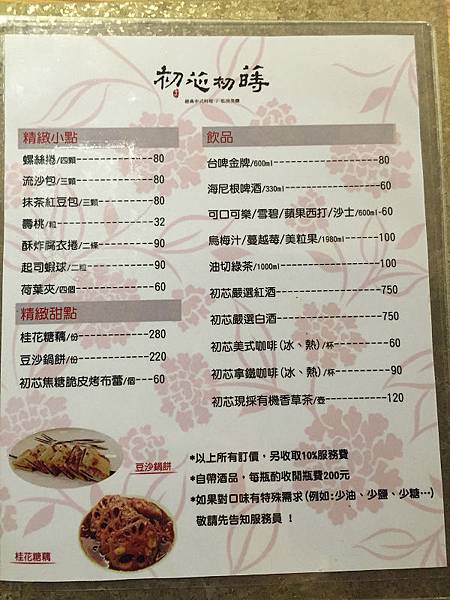 初芯初蒔
經典中式料理
精緻小點
螺絲捲/四顆---------------80
流沙包/三顆---------------80
抹茶紅豆包/三顆-----------80
壽桃/粒-------------------32
酥炸腐衣捲/二條-----------90
起司蝦球/二粒-------------90
荷葉夾/四個---------------60
精緻甜點
桂花糖藕/份--------------280
豆沙鍋餅/份--------------220
初芯焦糖脆皮烤布蕾/個---60
豆沙鍋餅
桂花糖藕
飲品
台啤金牌/600ml---------------------80
海尼根啤酒/330ml-------------------60
可口可樂/雪碧/蘋果西打/沙士/600ml-60
烏梅汁/蔓越莓/美粒果/1980ml------100
油切綠茶/1000ml------------------100
初芯嚴選紅酒---------------------750
初芯嚴選白酒---------------------750
初芯美式咖啡(冰、熱)/杯----------60
初芯拿鐵咖啡(冰、熱)/杯---------90
初芯現採有機香草茶/壺-----------120
*以上所有訂價，另收取10%服務費
*自帶酒品，每瓶酌收開瓶費200元
*如果對口味有特殊需求(例如:少油、少鹽、少糖…)
敬請先告知服務員！